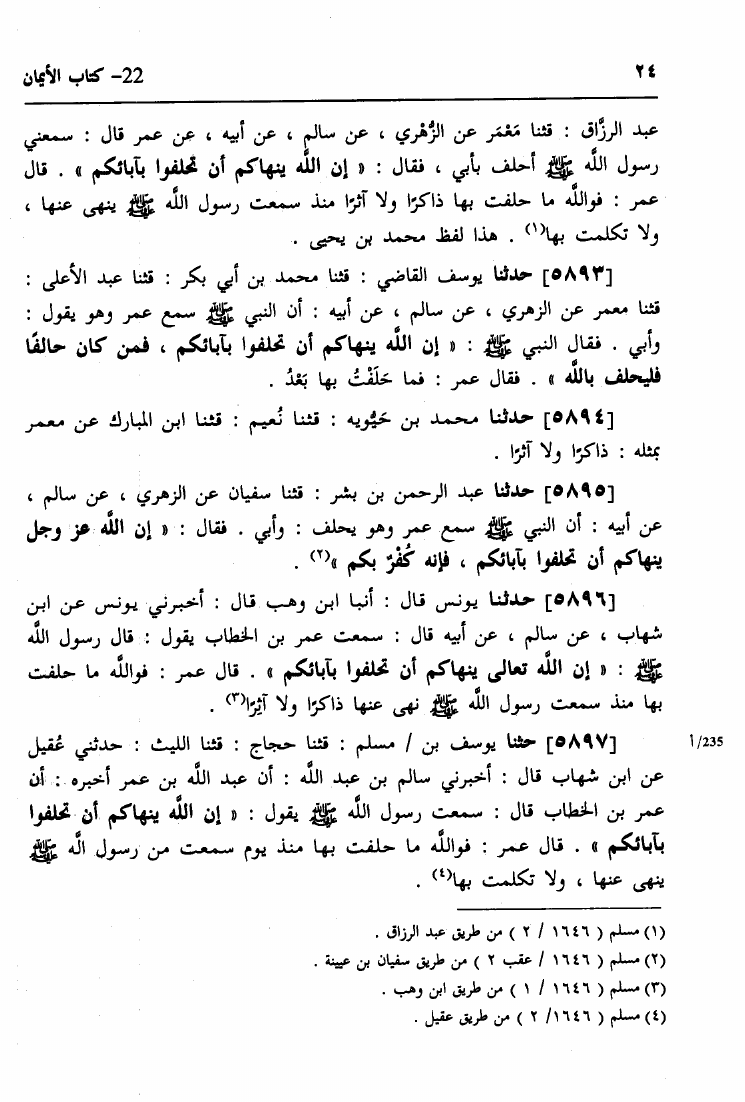 ٢٤
22- كتاب الأيمان
عبد الرزَّاق : قثنا مَعْمَر عن الزُّهْري ، عن سالم ، عن أبيه ، عن عمر قال : سمعني
رسول اللَّه ﷺ أحلف بأبي ، فقال : « إن اللَّه ينهاكم أن تحلفوا بآبائكم » . قال
عمر : فواللَّه ما حلفت بها ذاكرًا ولا آثرًا منذ سمعت رسول اللَّه ﷺ ينهى عنها ،
ولا تكلمت بها(١) . هذا لفظ محمد بن يحيى .
[٥٨٩٣] حدثنا يوسف القاضي : قثنا محمد بن أبي بكر : قثنا عبد الأعلى :
قثنا معمر عن الزهري ، عن سالم ، عن أبيه : أن النبي ﷺ سمع عمر وهو يقول :
وأبي . فقال النبي ﷺ : « إن اللَّه ينهاكم أن تحلفوا بآبائكم ، فمن كان حالفًا
فليحلف باللَّه » . فقال عمر : فما حَلَفْتُ بها بَعْدُ .
[٥٨٩٤] حدثنا محمد بن حَيُّويه : قثنا نُعيم : قثنا ابن المبارك عن معمر
بمثله : ذاكرًا ولا آثرًا .
[٥٨٩٥] حدثنا عبد الرحمن بن بشر : قثنا سفيان عن الزهري ، عن سالم ،
عن أبيه : أن النبي ﷺ سمع عمر وهو يحلف : وأبي . فقال : « إن اللَّه عز وجل
ينهاكم أن تحلفوا بآبائكم ، فإنه كُفْرٌ بكم »(٢) .
[٥٨٩٦] حدثنا يونس قال : أنبا ابن وهب قال : أخبرني يونس عن ابن
شهاب ، عن سالم ، عن أبيه قال : سمعت عمر بن الخطاب يقول : قال رسول اللَّه
ﷺ : « إن اللَّه تعالى ينهاكم أن تحلفوا بآبائكم » . قال عمر : فواللَّه ما حلفت
بها منذ سمعت رسول اللَّه ﷺ نهى عنها ذاكرًا ولا آثِرًا(٣) .
[٥٨٩٧] حثنا يوسف بن / مسلم : قثنا حجاج : قثنا الليث : حدثني عُقيل
235/أ
عن ابن شهاب قال : أخبرني سالم بن عبد اللَّه : أن عبد اللَّه بن عمر أخبره : أن
عمر بن الخطاب قال : سمعت رسول اللَّه ﷺ يقول : « إن اللَّه ينهاكم أن تحلفوا
بآبائكم » . قال عمر : فواللَّه ما حلفت بها منذ يوم سمعت من رسول الَّه ﷺ
ينهى عنها ، ولا تكلمت بها(٤) .
(١) مسلم ( ١٦٤٦ / ٢ ) من طريق عبد الرزاق .
(٢) مسلم ( ١٦٤٦ / عقب ٢ ) من طريق سفيان بن عيينة .
(٣) مسلم ( ١٦٤٦ / ١ ) من طريق ابن وهب .
(٤) مسلم ( ١٦٤٦/ ٢ ) من طريق عقيل .